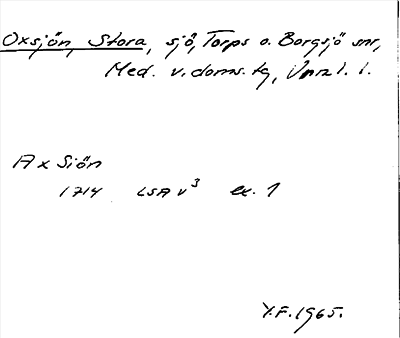 Oxsjön, Stora, sjö, Torps o. Borgsjö snr,
Med. v. doms. tg, l. l.
Ax Siön
1714 LSA v³ ex. 1
Y.F. 1965.